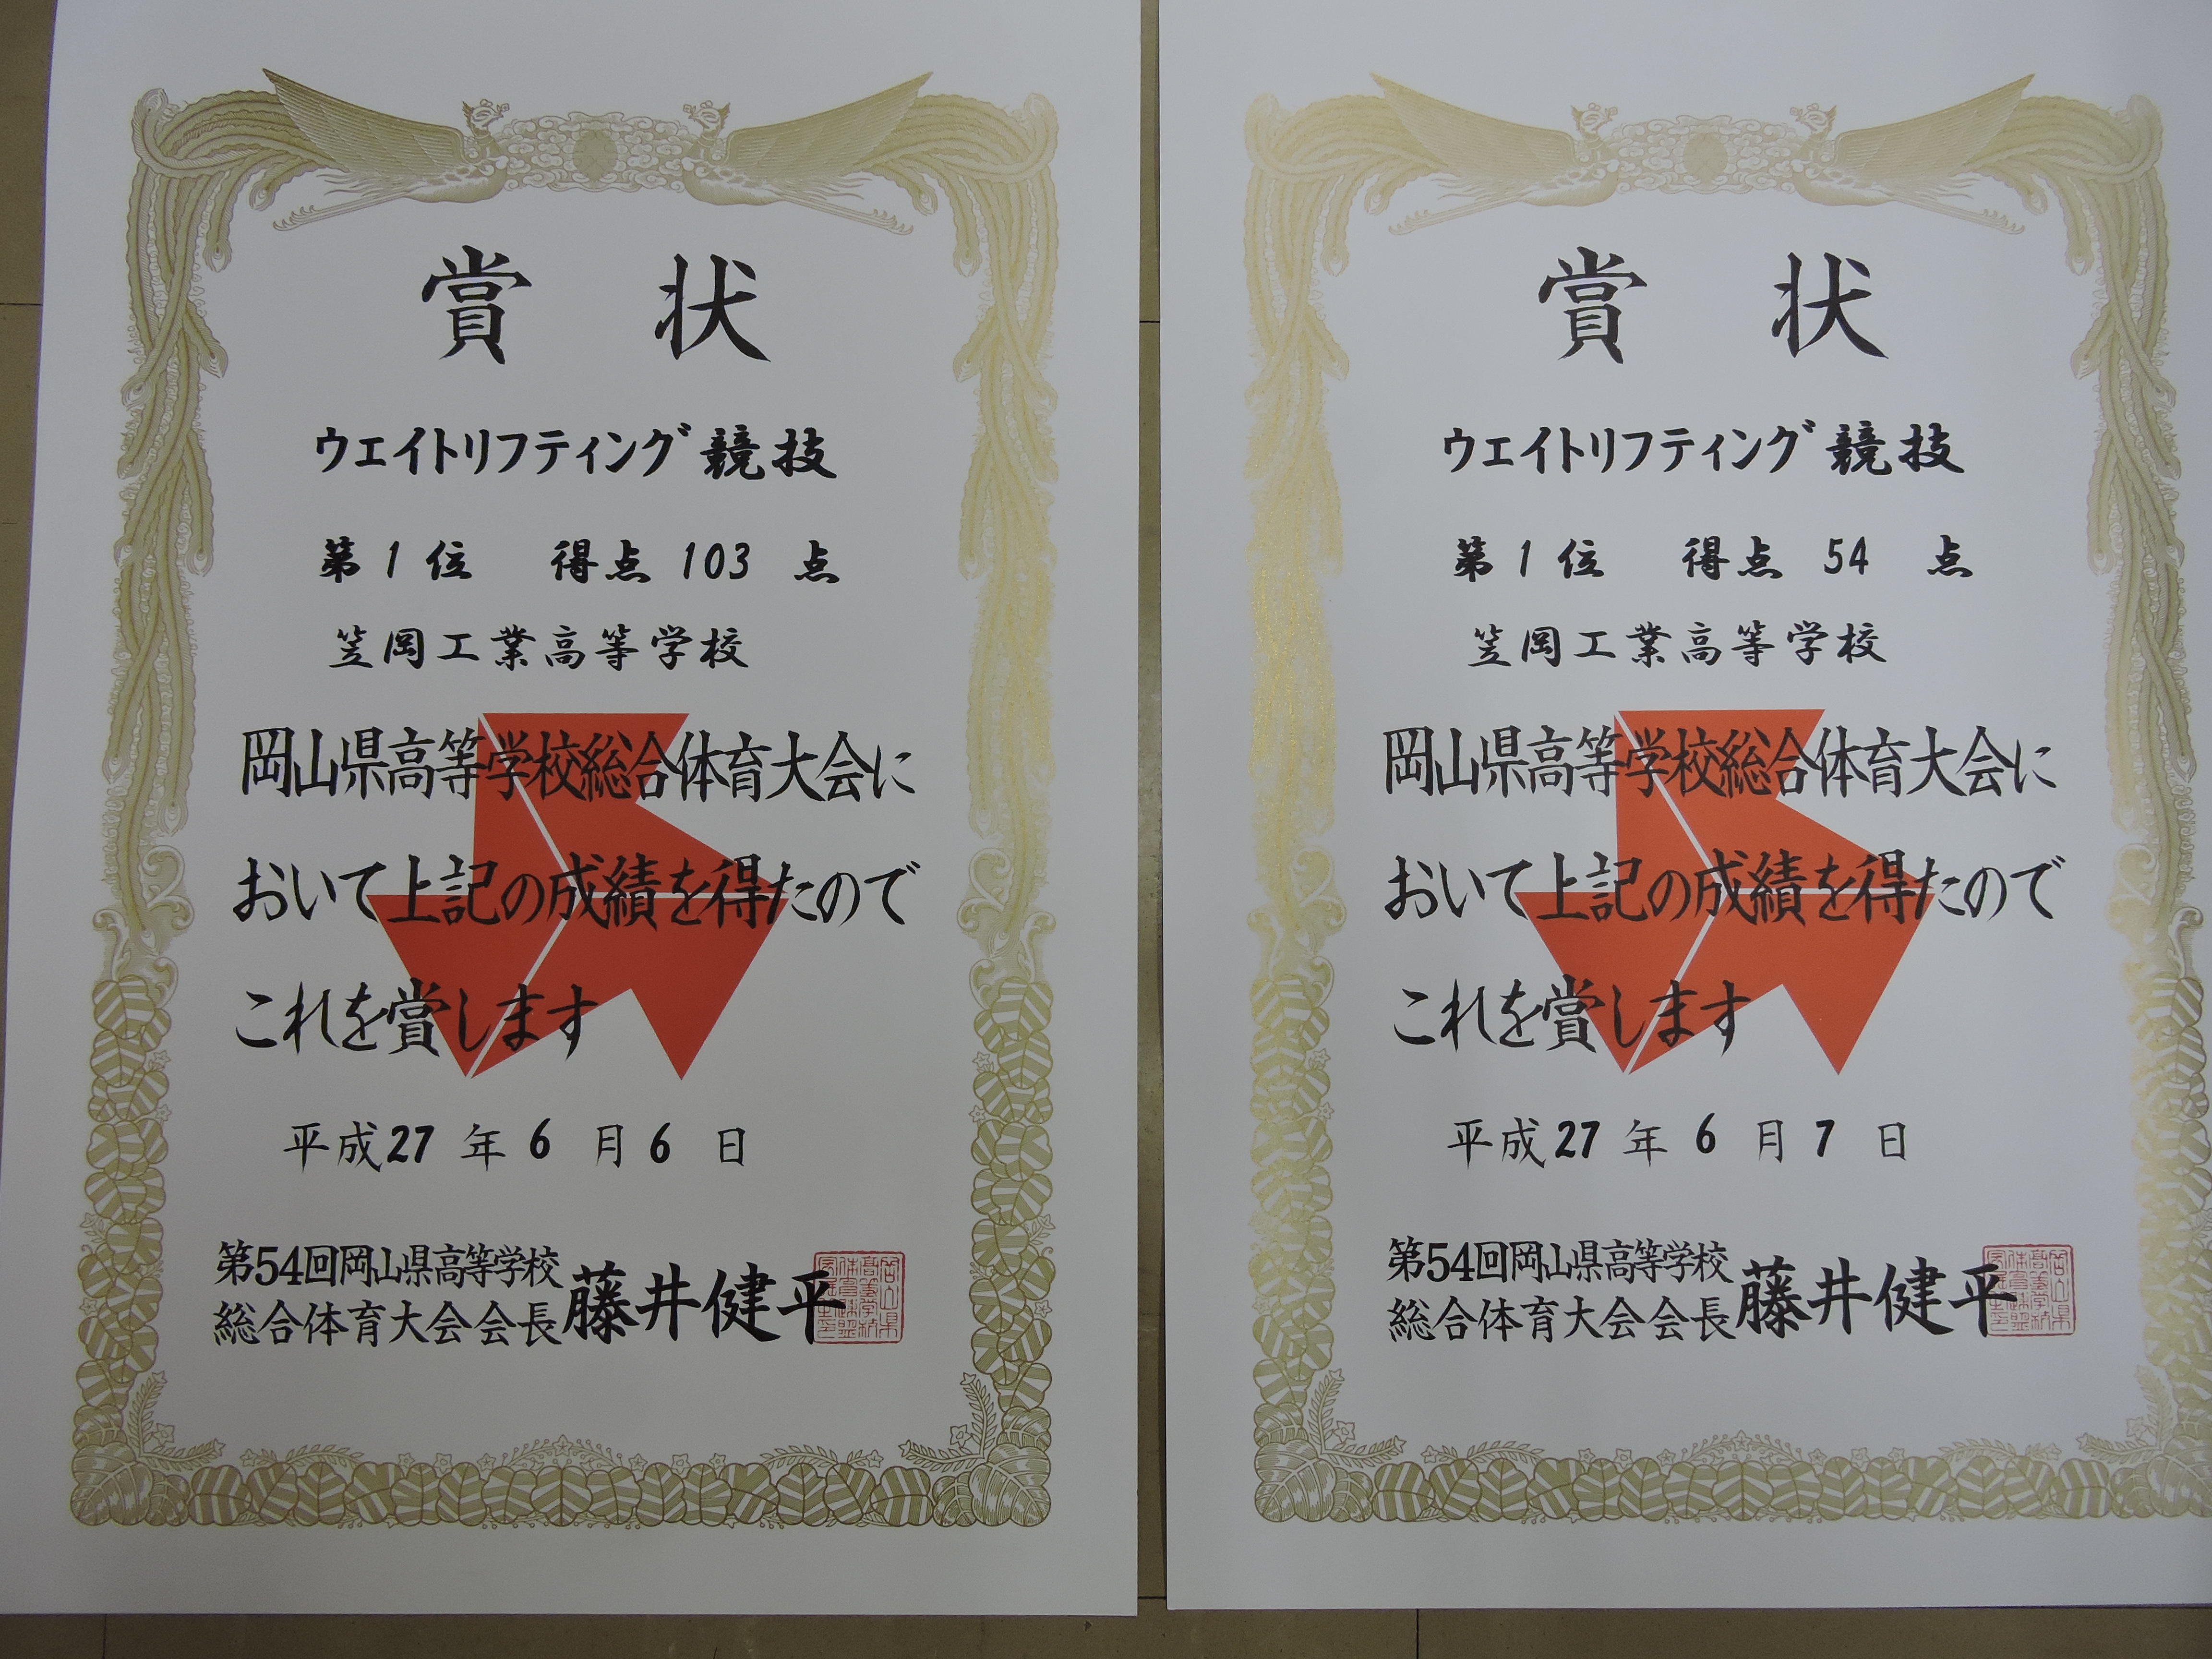 賞状
ウエイトリフティング競技
第1位 得点103点
笠岡工業高等学校
岡山県高等学校総合体育大会に
おいて上記の成績を得たので
これを賞します
平成27年6月6日
第54回岡山県高等学校
総合体育大会会長 藤井健平
賞状
ウエイトリフティング競技
第1位 得点54点
笠岡工業高等学校
岡山県高等学校総合体育大会に
おいて上記の成績を得たので
これを賞します
平成27年6月7日
第54回岡山県高等学校
総合体育大会会長 藤井健平